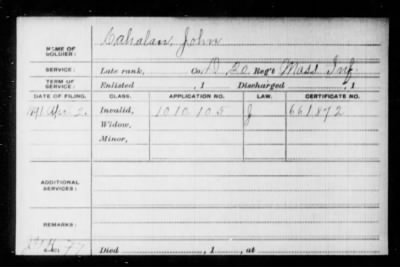 NAME OF SOLDIER: Cahalan, John
SERVICE: Late rank, Co. D, 20 Reg't Mass Inf
TERM OF SERVICE: Enlisted , 1 Discharged , 1
DATE OF FILING. CLASS. APPLICATION NO. LAW. CERTIFICATE NO.
1891 Apr. 2. Invalid, 1010105 J 661872
Widow,
Minor,
ADDITIONAL SERVICES:
REMARKS:
Died , 1 , at